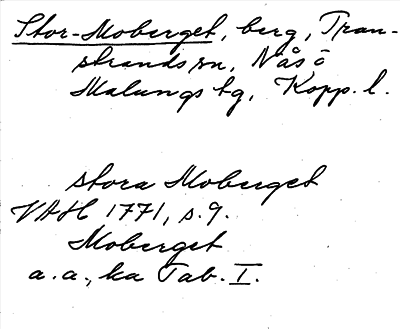 Stor-Moberget, berg, Tran-
strands sn, Nås o
Malungs tg, Kopp. l.
stora Moberget
VAH 1771, s. 9.
Moberget
a. a., ka Tab. I.